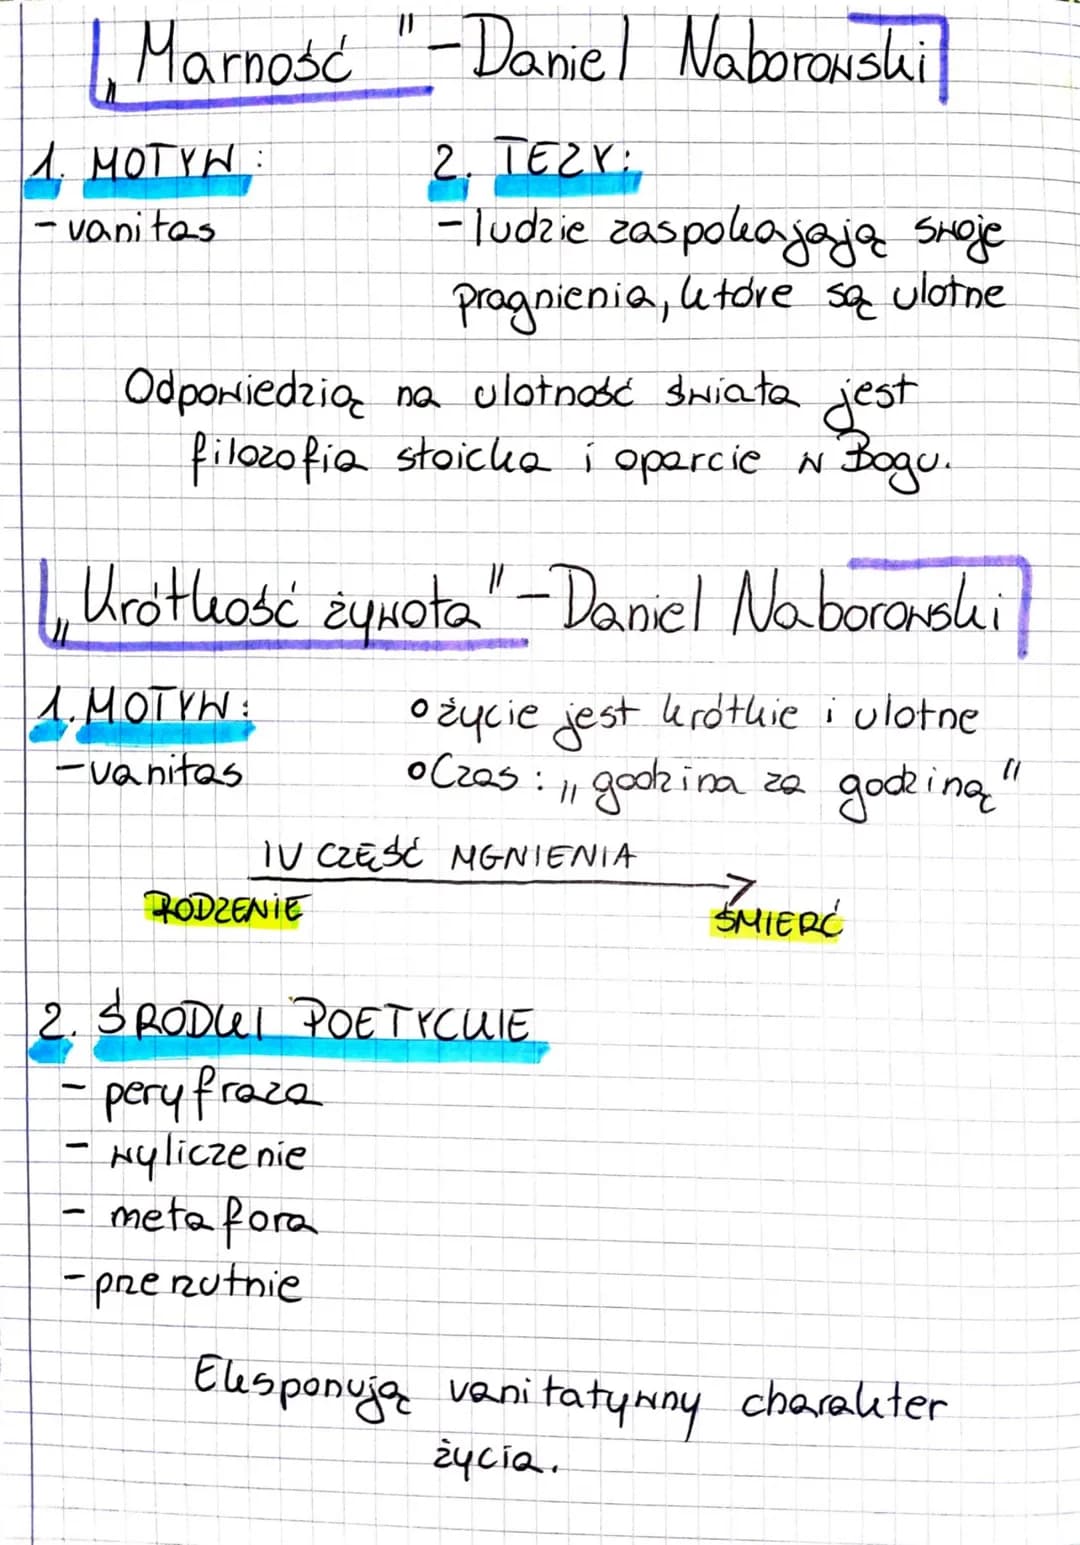 „Marność" - Daniel Naborowski
1. MOTYW:
- vanitas
2. TEZY:
- ludzie zaspokajają swoje
pragnienia, które są ulotne
Odpowiedzią na ulotność świata jest
filozofia stoicka i oparcie w Bogu.
„Krótkość żywota" - Daniel Naborowski
1. MOTYW:
- vanitas
o życie jest krótkie i ulotne
o Czas: „godzina za godziną"
IV CZĘŚĆ MGNIENIA
RODZENIE
ŚMIERĆ
2. ŚRODKI POETYCKIE
- peryfraza
- wyliczenie
- metafora
- przerzutnie
Eksponują vanitatywny charakter
życia.